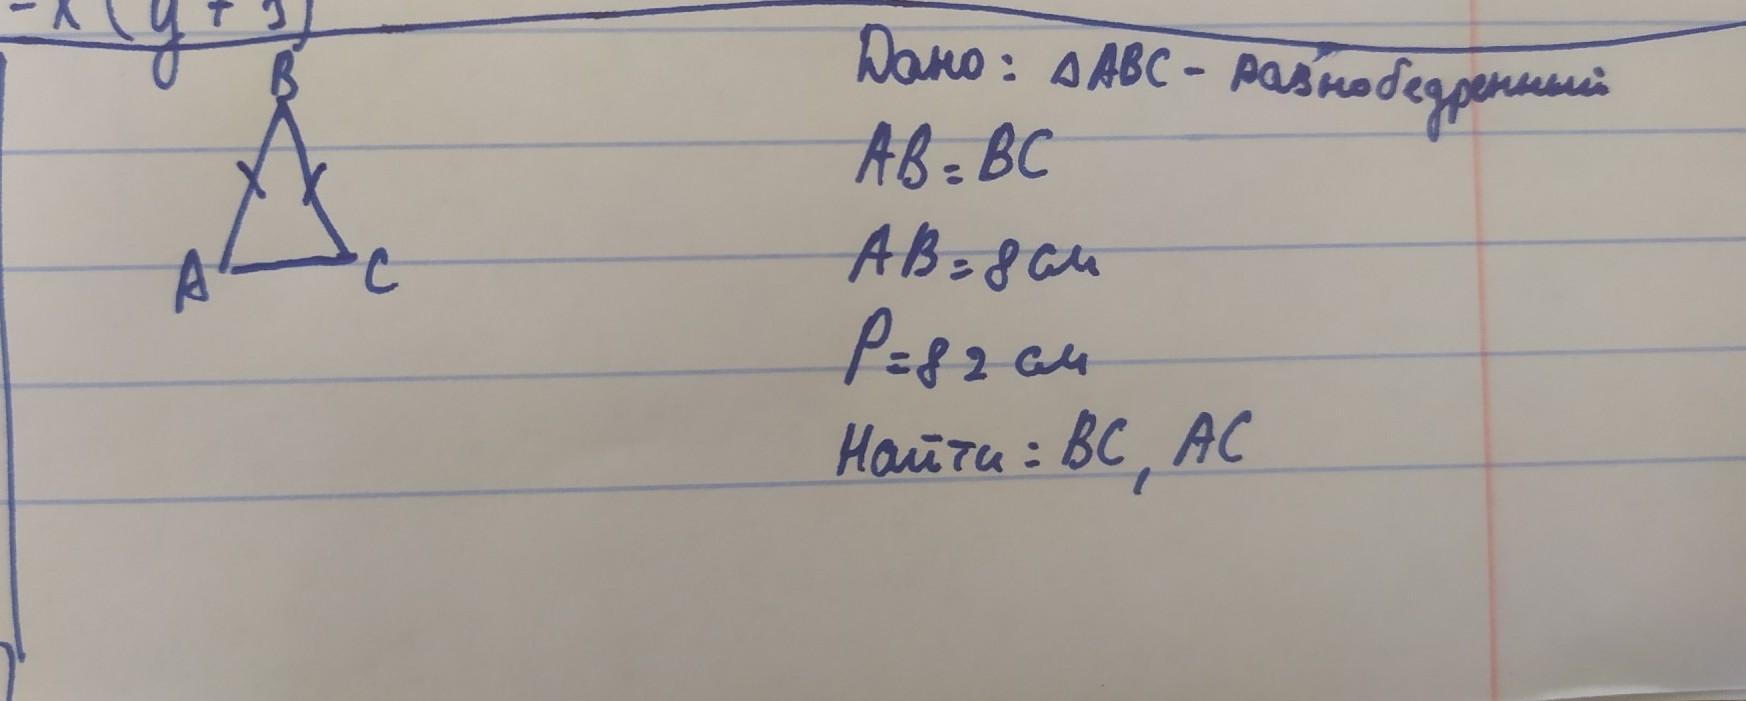 - x ( y + 3 )
B
A
C
Дано: △ABC - равнобедренный
AB = BC
AB = 8 см
P = 82 см
Найти: BC, AC